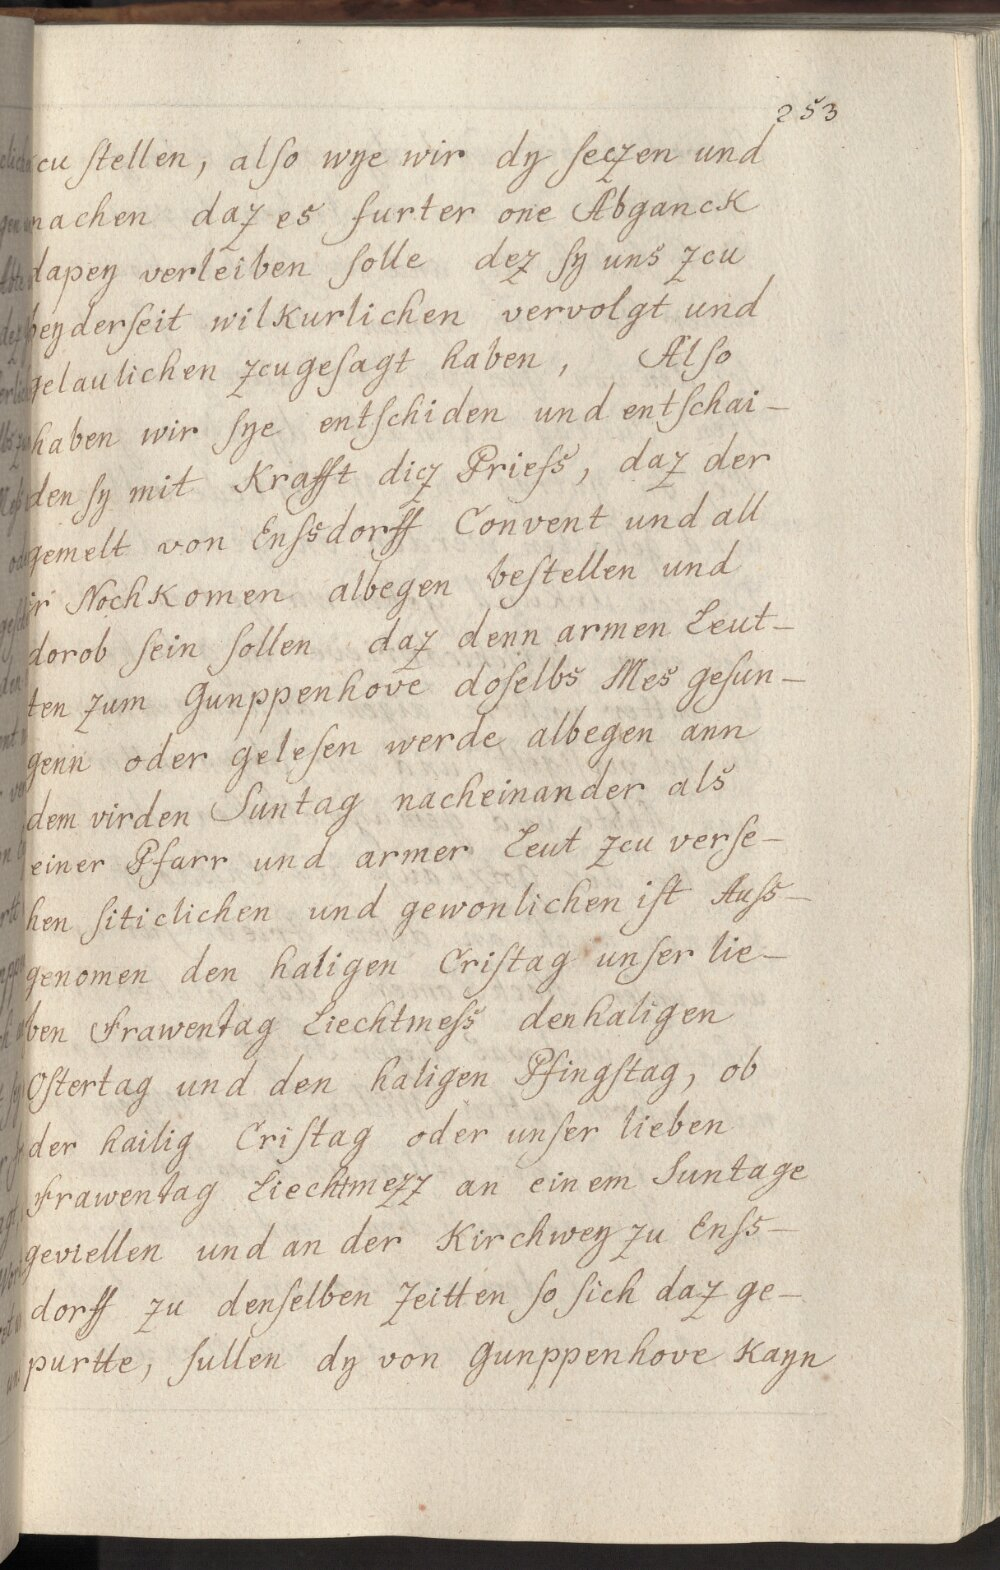 253
cu ſtellen, alſo wye wir dy ſeczen und
machen daz es furter one Abganck
dapey verleiben ſolle dez ſy uns zcu
beyderſeit wilkurlichen vervolgt und
gelaulichen zcugeſagt haben, Alſo
haben wir ſye entſchiden und entſchai-
den ſy mit Krafft dicz Prieſs, daz der
gemelt von Enſsdorff Convent und all
ir Nochkomen albegen beſtellen und
dorob ſein ſollen daz denn armen Leut-
ten zum Gunppenhove doſelbs Mes geſun-
genn oder geleſen werde albegen ann
dem virden Suntag nacheinander als
einer Pfarr und armer Leut zcu verſe-
hen ſiticlichen und gewonlichen iſt Auſs-
genomen den haligen Criſtag unſer lie-
ben Frawentag Liechtmeſs den haligen
Oſtertag und den haligen Pfingſtag, ob
der hailig Criſtag oder unſer lieben
Frawentag Liechtmezz an einem Suntage
geviellen und an der Kirchwey zu Enſs-
dorff zu denſelben Zeitten ſo ſich daz ge-
purtte, ſullen dy von Gunppenhove Kayn